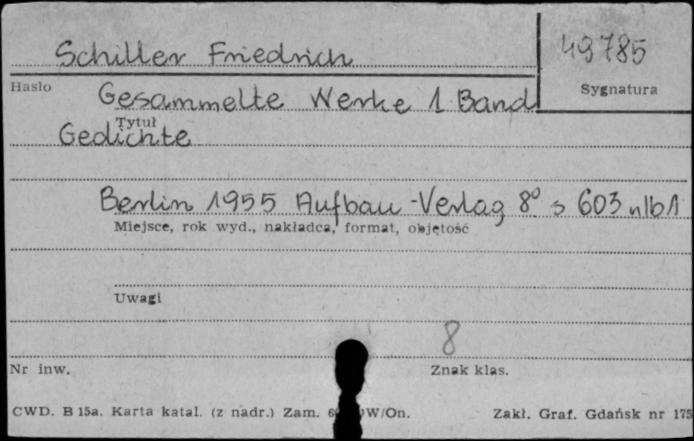 Schiller Friedrich
49785
Hasło
Sygnatura
Gesammelte Werke 1 Band
Tytuł
Gedichte
Berlin 1955 Aufbau-Verlag 8° s 603 nlb 1
Miejsce, rok wyd., nakładca, format, objętość
Uwagi
8
Nr inw.
Znak klas.
CWD. B 15a. Karta katal. (z nadr.) Zam. W/On.
Zakł. Graf. Gdańsk nr 175